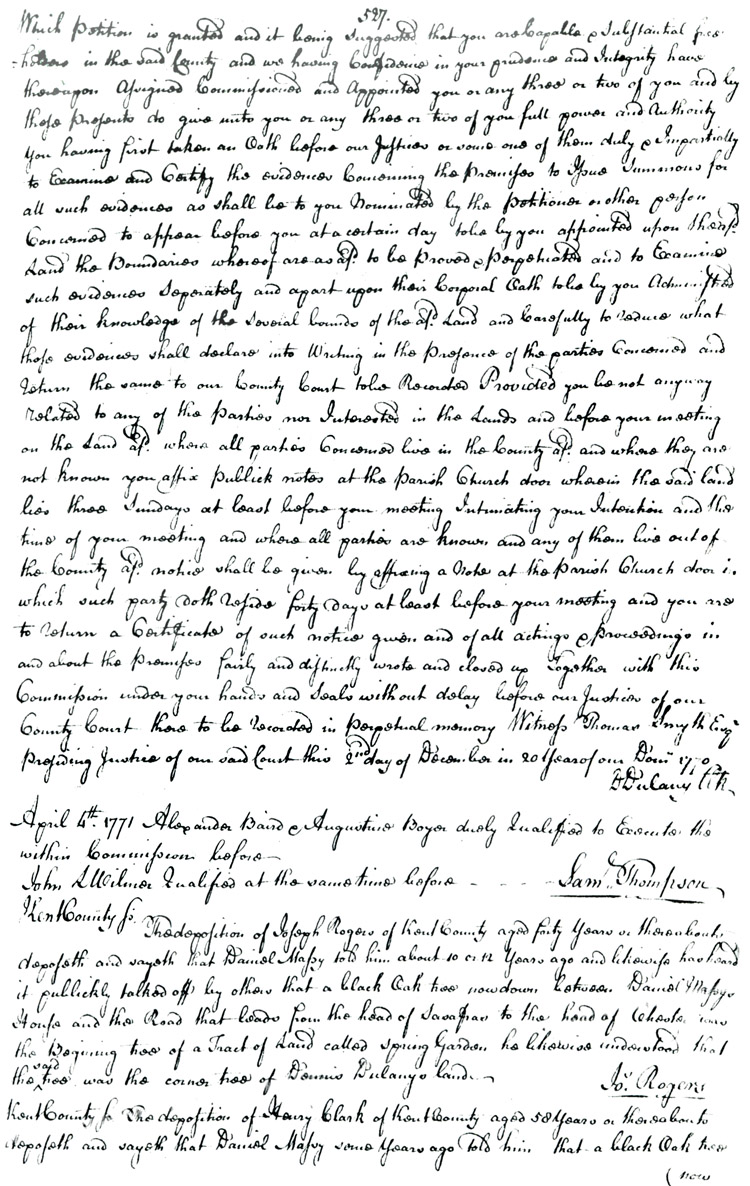 527.
Which Petition is granted and it being Suggested that you are Capable & Substantial free
=holders in the Said County and we having Confidence in your prudence and Integrity have
thereupon Assigned Commissioned and Appointed you or any three or two of you and by
these Presents do give unto you or any three or two of you full power and Authority
you having first taken an Oath before our Justices or some one of them duly & Impartially
to Examine and Certify the evidences Concerning the Premises to Issue Summons for
all such evidences as shall be to you Nominated by the Petitioner or other person
Concerned to appear before you at a certain day to be by you appointed upon the afsd.
Land the Boundaries whereof are as afd. to be Proved & perpetuated and to Examine
such evidences Seperately and apart upon their Corporal Oath to be by you Administred
of their knowledge of the Several bounds of the afd. Land and Carefully to reduce what
those evidences shall declare into Writing in the Presence of the parties Concerned and
return the same to our County Court to be Recorded Provided you be not anyway
related to any of the Parties nor Interested in the Lands and before your meeting
on the Land afd. where all parties Concerned live in the County afd. and where they are
not known you affix Publick notes at the Parish Church door wherein the said land
lies three Sundays at least before your meeting Intimating your Intention and the
time of your meeting and where all parties are known and any of them live out of
the County afd. notice shall be given by affixing a Note at the Parish Church door in
which such party doth reside forty days at least before your meeting and you are
to return a Certificate of such notice given and of all actings & Proceedings in
and about the Premises fairly and distinctly wrote and closed up Together with this
Commission under your hands and Seals without delay before our Justices of our
County Court there to be recorded in perpetual memory Witness Thomas Smyth Esqr
Presiding Justice of our said Court this 2nd day of December in 20 Year of our Domn 1770
D Dulany Clk
April 4th. 1771 Alexander Baird & Augustine Boyer duely Qualified to Execute the
within Commission before
John L Wilmer Qualified at the same time before - - - Saml. Thompson
Kent County Ss.
The deposition of Joseph Rogers of Kent County aged forty Years or thereabouts
deposeth and sayeth that Daniel Massy told him about 10 or 12 Years ago and likewise has heard
it publickly talked off by others that a black Oak tree now down between Daniel Massys
House and the Road that leads from the head of Sasafras to the head of Chester was
the Begining tree of a Tract of Land called Spring Garden he likewise understood that
the said tree was the corner tree of Dennis Dulanys land. Jos. Rogers
Kent County Ss The deposition of Henry Clark of Kent County aged 58 Years or thereabouts
deposeth and sayeth that Daniel Massy some Years ago Told him that a black Oak tree
(now